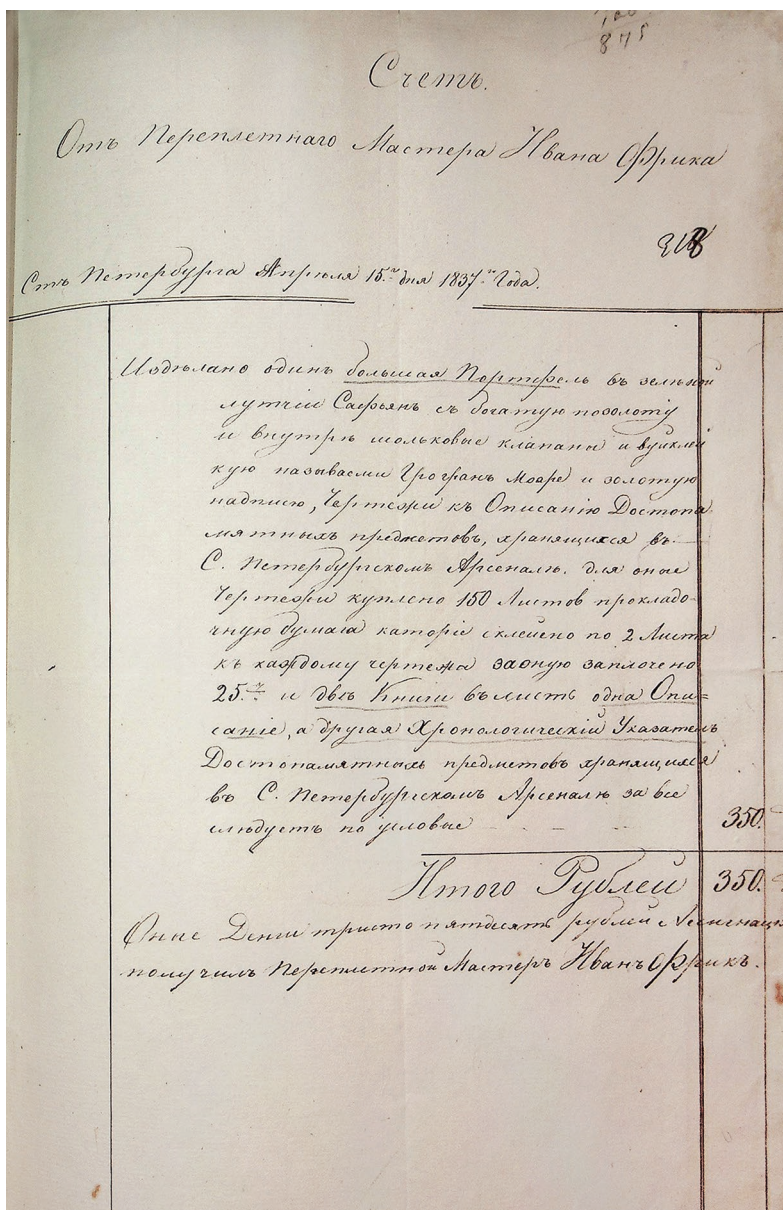 875
Счетъ.
Отъ Переплетнаго Мастера Ивана Фрика
Стъ Петербурга Апреля 15го дня 1837го Года.
Издѣлано одинъ большая Портфель въ зельной
лутчіи Сафьянъ съ богатую позолоту
и внутрѣ шолковые клапаны и вуклей
кую называеми Грогранъ Моаре и золотую
надписю, Чертежи къ Описанію Достопа
мятныхъ предметовъ, хранящихся въ
С. Петербургскомъ Арсеналѣ. для оные
Чертежи куплено 150 Листов прокладо-
чную бумага каторіе склеено по 2 Листа
къ каждому чертежа заоную заплочено
25. и двѣ Книги въ листъ одна Опи-
саніе, а другая Хронологическій Указатель
Достопамятныхъ предметовъ хранящихся
въ С. Петербургскомъ Арсеналѣ за все
слѣдуетъ по условіе 350.
Итого Рублей 350.
Оные Денги тристо пятдесятъ рублей Ассигнац
получилъ Переплетной Мастеръ Иванъ Фрикъ.